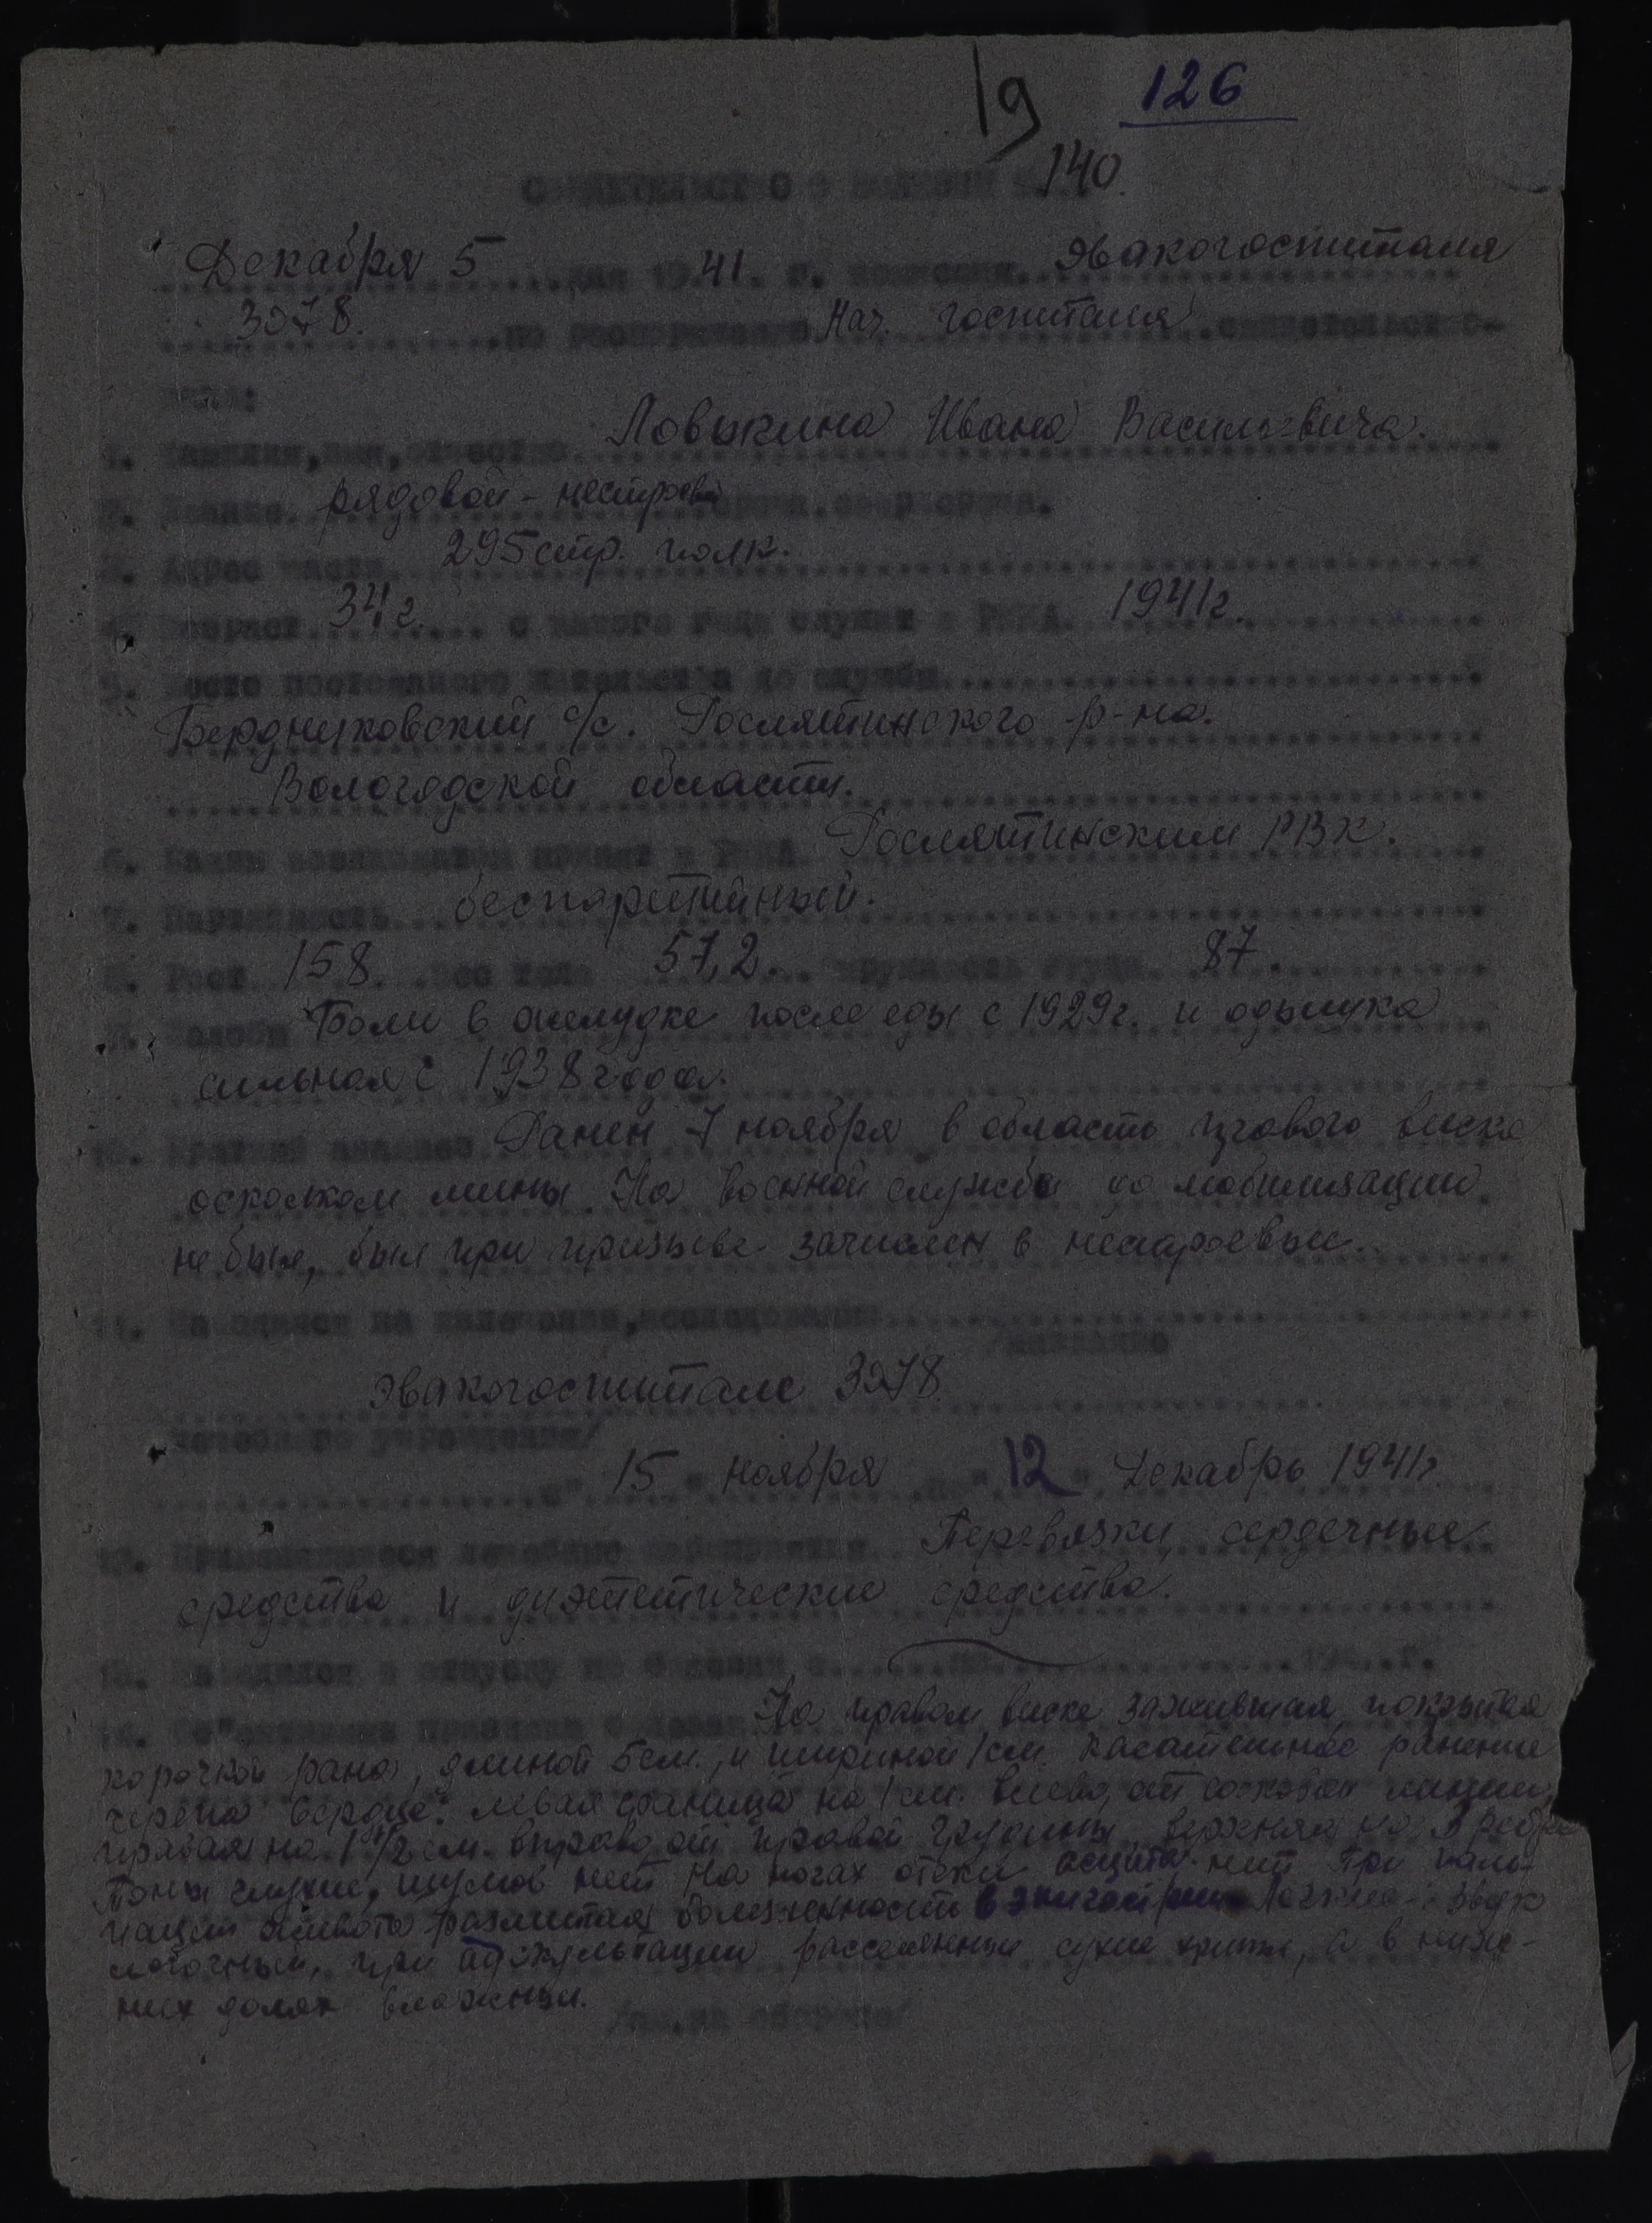 19 126
СВИДЕТЕЛЬСТВО О БОЛЕЗНИ № 140.
Декабря 5 дня 1941. г. комиссия эвакогоспиталя
3078. по распоряжению Нач. госпиталя свидетельство-
вала:
1. Фамилия, имя, отчество Ловыкина Ивана Васильевича.
2. Звание рядовой - нестроев
3. Адрес части 295 стр. полк.
4. Возраст 34 г. с какого года служит в РККА. 1941 г.
5. Место постоянного жительства до службы
Бердниковский с/с. Рослятинского р-на.
Вологодской области.
6. Каким военкоматом призван в РККА. Рослятинским РВК.
7. Партийность беспартийный.
8. Рост 158. вес тела 57,2. окружность груди 87.
9. Жалобы Боли в желудке после еды с 1929 г. и одышка
сильная с 1938 года.
10. Краткий анамнез Ранен 7 ноября в область правого виска
осколком мины. На военной службе до мобилизации
не был, был при призыве зачислен в нестроевые.
11. Находился на излечении, исследовании
/название
Эвакогоспитале 3078
лечебного учреждения/
с " 15 " ноября по " 12 " Декабрь 1941 г.
12. Применявшиеся лечебные мероприятия Перевязки, сердечные
средства и диэтетические средства.
13. Находился в отпуску по болезни с по 194 г.
14. Об"ективные признаки болезни На правом виске зажившая, покрытая
корочкой рана, длиной 5 см., и шириной 1 см. касательное ранение
черепа. Сердце: левая граница на 1 см. влево, от сосковой линии,
правая на 1 1/2 см. вправо от правой грудины, верхняя на 3 ребре
Тоны глухие, шумов нет. На ногах отеки, асцита нет. При паль-
пации живота разлитая болезненность в эпигастрии. Легкие: звук
легочный, при аускультации рассеянные сухие хрипы, а в ниж-
них долях влажные.
/см. на обороте/